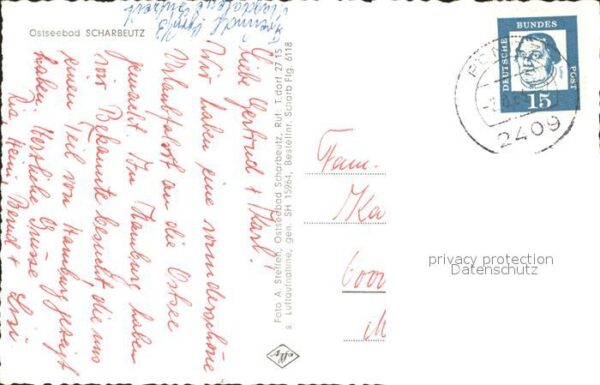 Ostseebad SCHARBEUTZ
Liebe Gertrud + Karl!
Wir haben eine wunderschöne
Urlaubfahrt an die Ostsee
gemacht. In Hamburg haben
wir Bekannte besucht die uns
einen Teil von Hamburg gezeigt
haben. Herzliche Grüsse
Die Heini Bernd + Lissi.
Foto A. Steffen, Ostseebad Scharbeutz, Ruf: T.dorf 2715
s. Luftaufnahme, gen. SH 15964, Bestellnr. Scharb Flg. 6118
DEUTSCHE BUNDESPOST
15
2409
Fam.
Ka
6000
privacy protection
Datenschutz